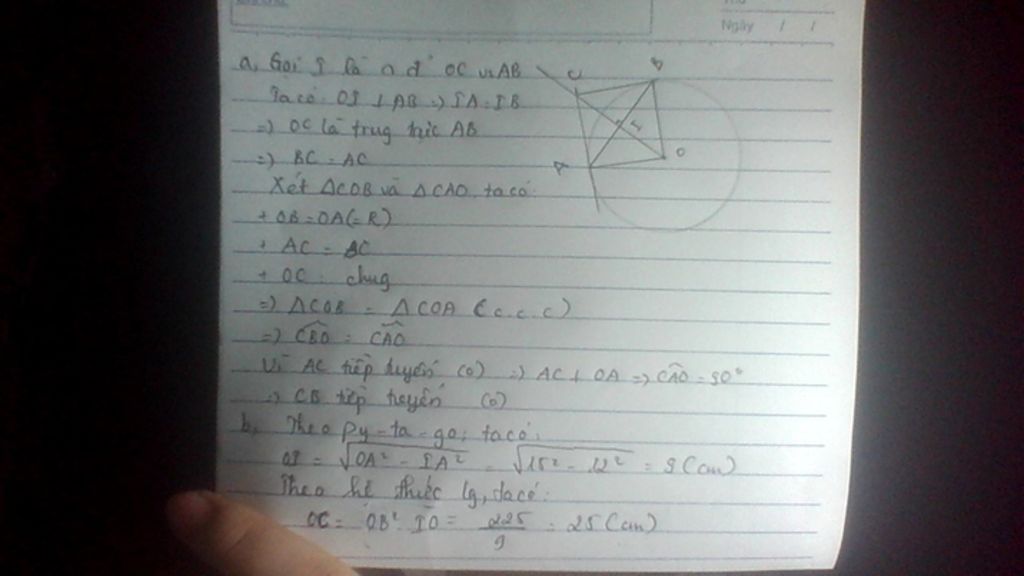 Ngày / /
a, Gọi I là n đ' OC và AB
Ta có: OI ⊥ AB => IA = IB
=> OC là trug trực AB
=> BC = AC
Xét ΔCOB và ΔCAO, ta có:
+ OB = OA (= R)
+ AC = BC
+ OC : chug
=> ΔCOB = ΔCOA (c.c.c)
=> CBO = CAO
Vì AC tiếp tuyến (O) => AC ⊥ OA => CAO = 90°
=> CB tiếp tuyến (O)
b, Theo Py-ta-go, ta có:
OI = √OA² - IA² = √15² - 12² = 9 (cm)
Theo hệ thức lg, ta có:
OC = OB² : IO = 225/9 = 25 (cm)
C
B
I
A
O